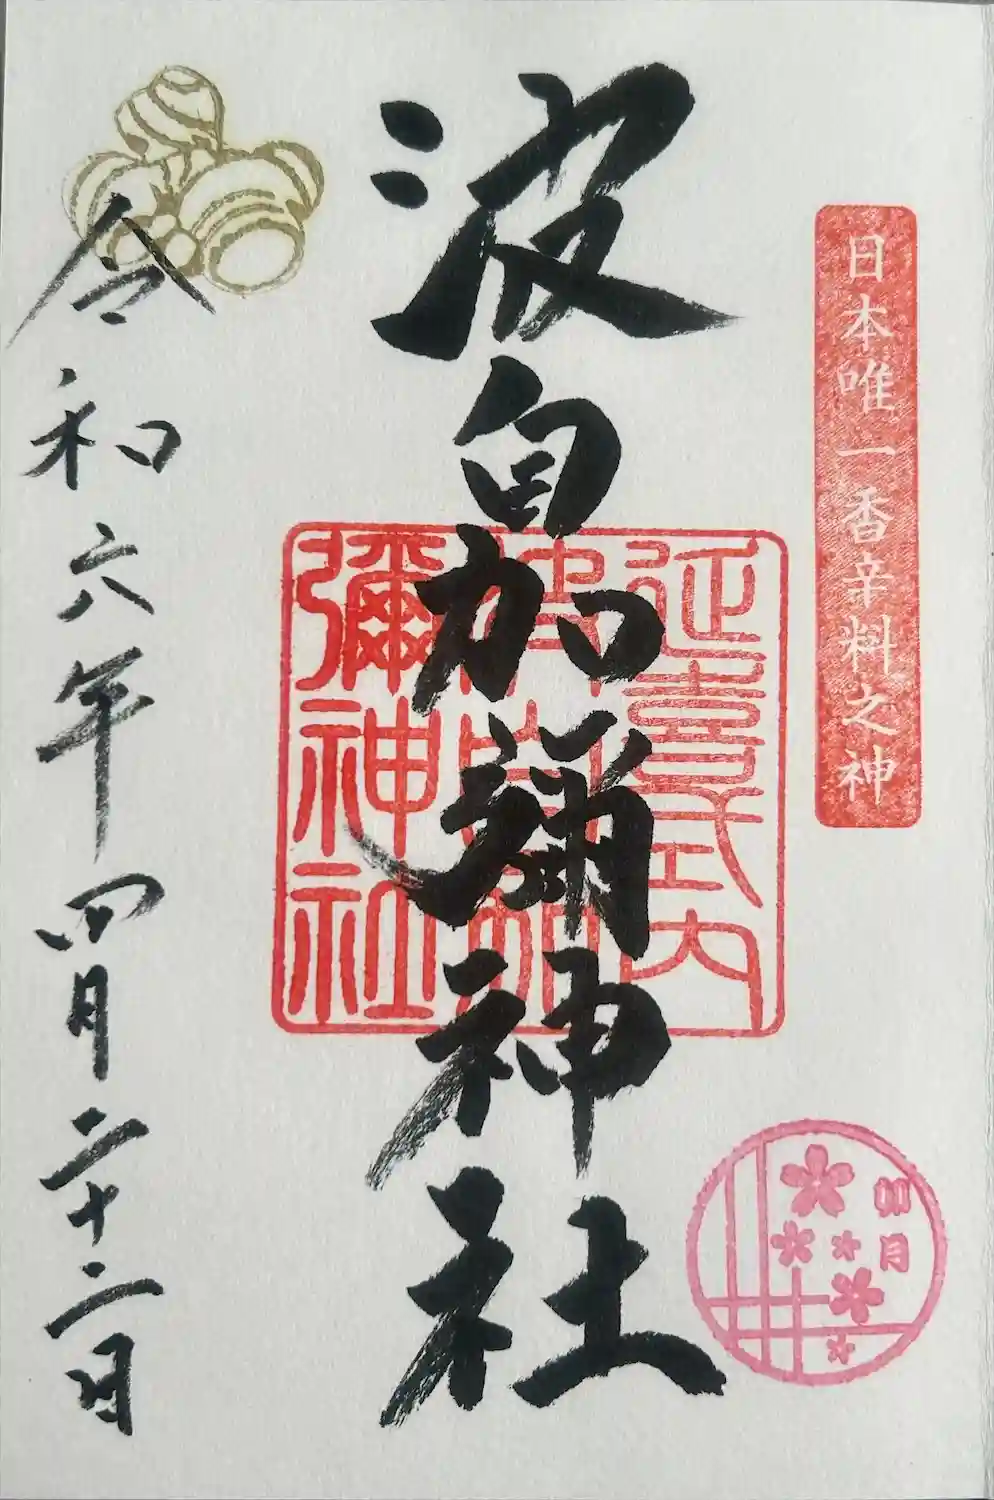 日本唯一香辛料之神
延喜式内
波自加彌神社
波自加彌神社
如月
令和六年四月二十二日